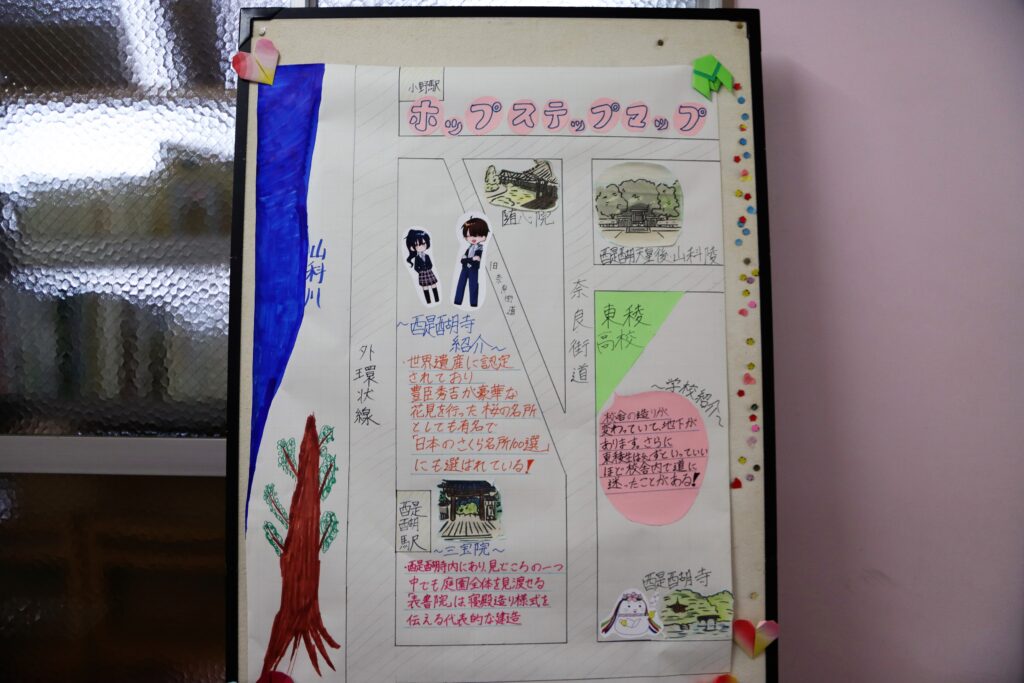 小野駅
ホップステップマップ
随心院
醍醐天皇後山科陵
山科川
旧奈良街道
奈良街道
外環状線
東稜
高校
～醍醐寺
紹介～
・世界遺産に認定
されており
豊臣秀吉が豪華な
花見を行った桜の名所
としても有名で
「日本のさくら名所100選」
にも選ばれている!
～学校紹介～
校舎の造りが
変わっていて、地下が
あります。さらに
東稜生は必ずといっていい
ほど校舎内で道に
迷ったことがある!
醍醐駅
～三宝院～
・醍醐寺内にあり、見どころの一つ
中でも庭園全体を見渡せる
「表書院」は寝殿造り様式を
伝える代表的な建造
醍醐寺